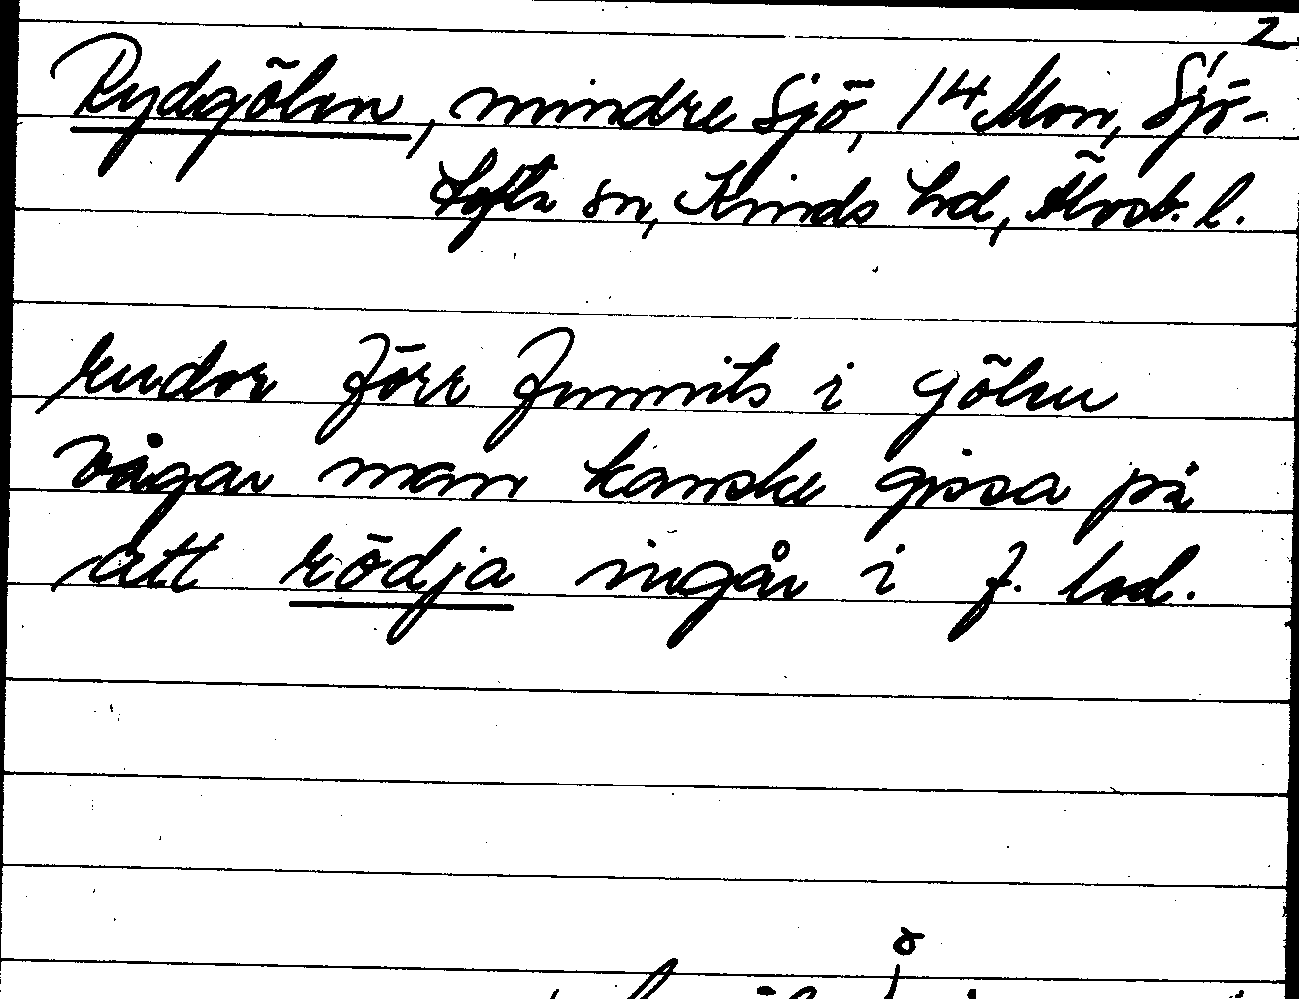 2
Rydgölen, mindre sjö, 14 Mon, Sjö-
tofta sn, Kinds hd, Älvsb. l.
rudor förr funnits i gölen
vågar man kanske gissa på
att rödja ingår i f. led.